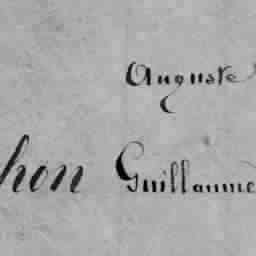 Auguste
hon Guillaume